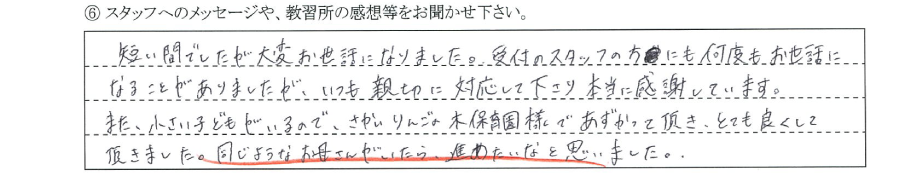 ⑥ スタッフへのメッセージや、教習所の感想等をお聞かせ下さい。
短い間でしたが大変お世話になりました。受付のスタッフの方にも何度もお世話に
なることがありましたが、いつも親切に対応して下さり本当に感謝しています。
また、小さい子どもがいるので、さかいりんごの木保育園様であずかって頂き、とても良くして
頂きました。同じようなお母さんがいたら、進めたいなと思いました。